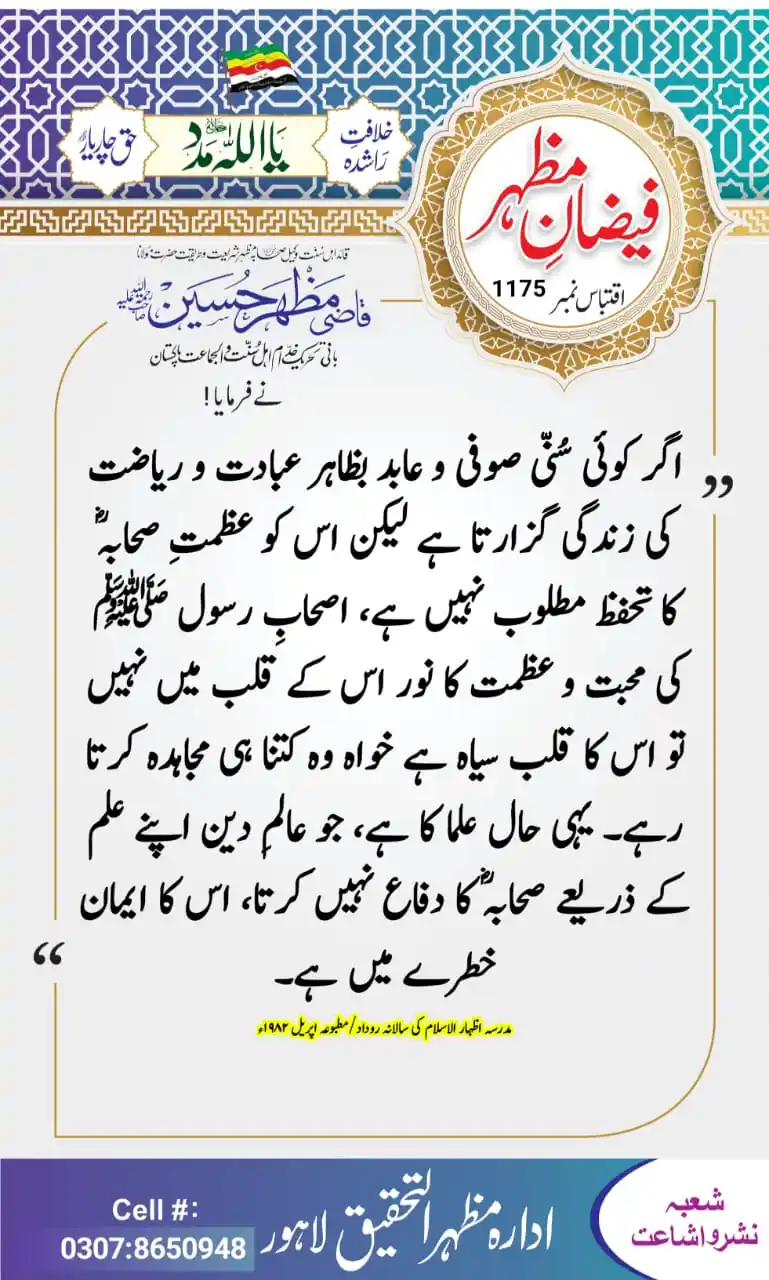 خلافتِ راشدہ
یا اللہ مدد
حق چار یارؓ
فیضانِ مظہر
اقتباس نمبر 1175
قائد اہل سنت وکیل صحابہؓ مظہر شریعت و طریقت حضرت مولانا
قاضی مظہر حسین رحمۃ اللہ علیہ
بانی تحریک خدّام اہل سُنّت و الجماعت پاکستان
نے فرمایا!
”
اگر کوئی سُنّی صوفی و عابد بظاہر عبادت و ریاضت
کی زندگی گزارتا ہے لیکن اس کو عظمتِ صحابہؓ
کا تحفظ مطلوب نہیں ہے، اصحابِ رسول ﷺ
کی محبت و عظمت کا نور اس کے قلب میں نہیں
تو اس کا قلب سیاہ ہے خواہ وہ کتنا ہی مجاہدہ کرتا
رہے۔ یہی حال علما کا ہے، جو عالمِ دین اپنے علم
کے ذریعے صحابہؓ کا دفاع نہیں کرتا، اس کا ایمان
خطرے میں ہے۔
“
مدرسہ اظہار الاسلام کی سالانہ روداد/مطبوعہ اپریل ۱۹۸۲ء
شعبہ
نشر و اشاعت
ادارہ مظہر التحقیق لاہور
Cell #:
0307:8650948